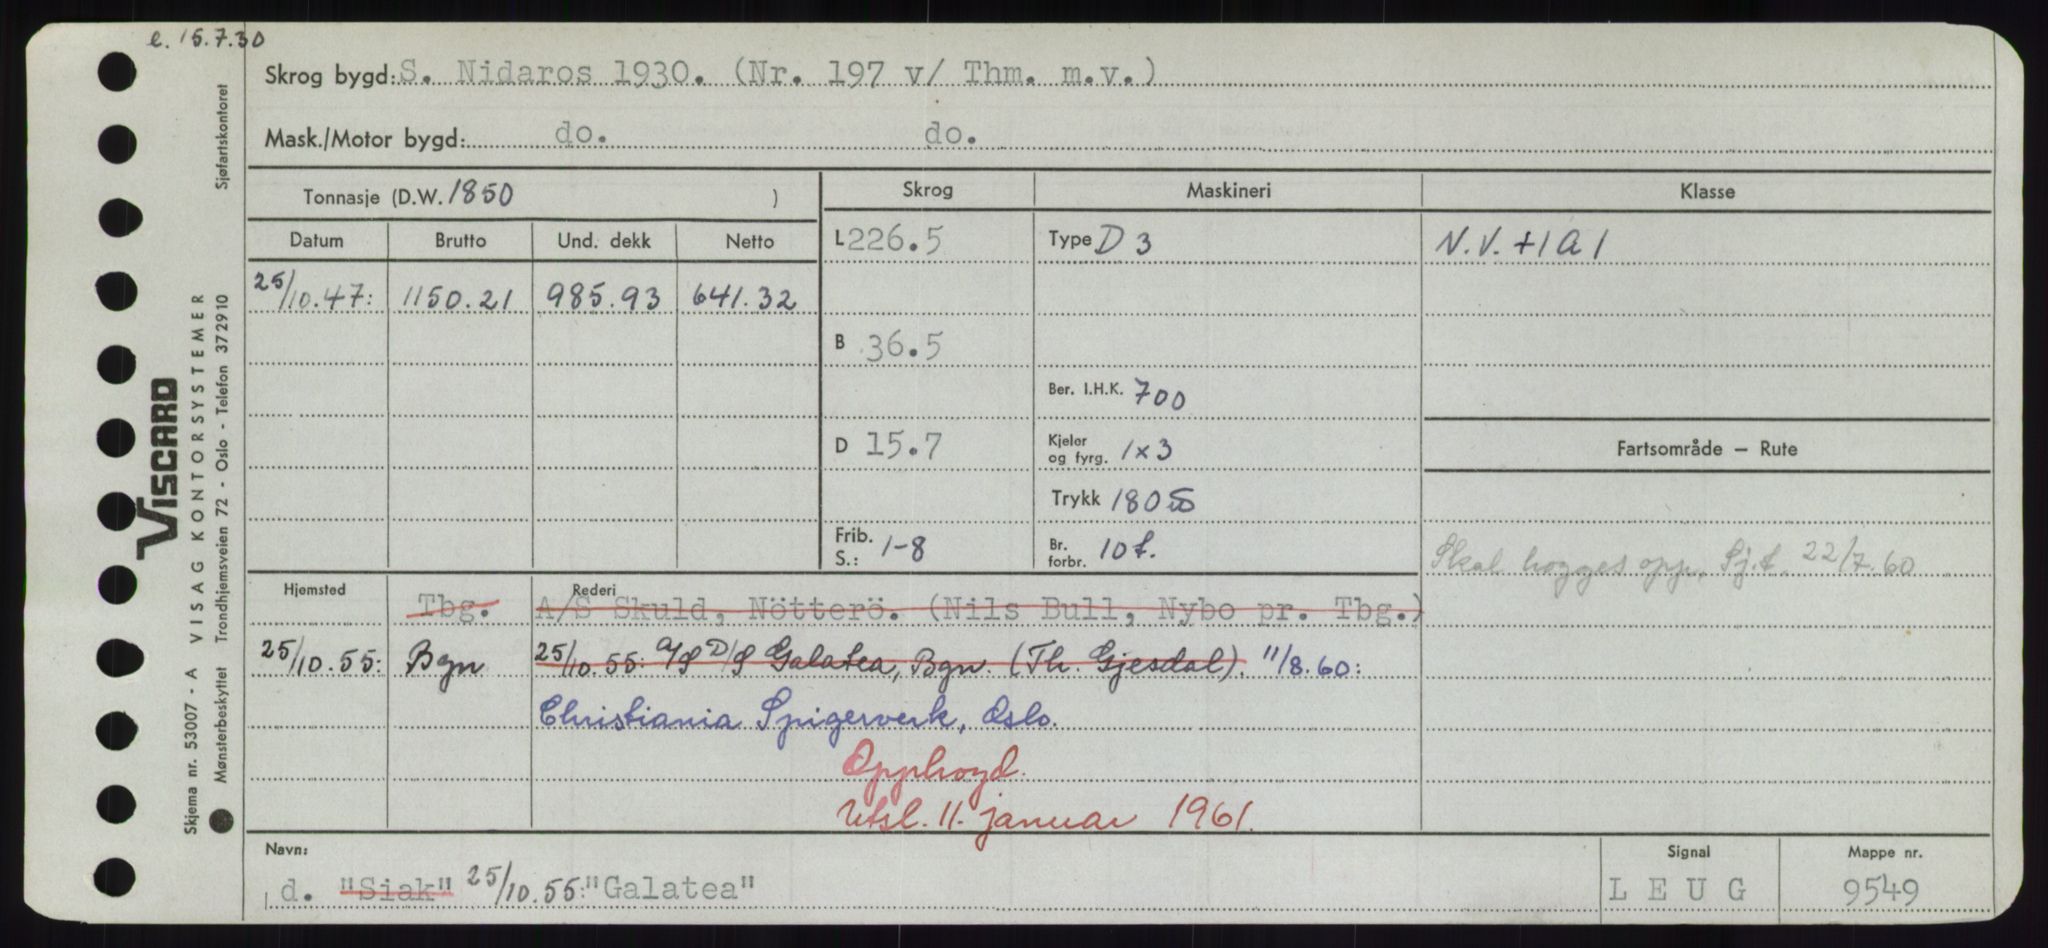 e. 15.7.30
Skrog bygd: S. Nidaros 1930. (Nr. 197 v/ Thm. m.v.)
Mask./Motor bygd: do. do.
Tonnasje (D.W. 1850 )
Skrog Maskineri Klasse
Datum Brutto Und. dekk Netto
L 226.5 Type D 3 N.V. +1 A 1
25/10.47: 1150.21 985.93 641.32
B 36.5
Ber. I.H.K. 700
D 15.7 Kjeler og fyrg. 1x3
Fartsområde – Rute
Trykk 180
Frib. S.: 1-8 Br. forbr. 10 t.
Skal hogges opp. Sj.t. 22/7.60
Hjemsted Rederi
Tbg. A/S Skuld, Nötterö. (Nils Bull, Nybo pr. Tbg.)
25/10.55: Bgn 25/10.55: A/S D/S Galatea, Bgn. (Th. Gjesdal). 11/8.60:
Christiania Spigerverk, Oslo.
Opphogd.
Utsl. 11. januar 1961.
Navn: Signal Mappe nr.
d. "Siak" 25/10.55: "Galatea" L E U G 9549
Viscard
Skjema nr. 53007 - A VISAG KONTORSYSTEMER
Mønsterbeskyttet Trondhjemsveien 72 - Oslo - Telefon 372910 Sjøfartskontoret